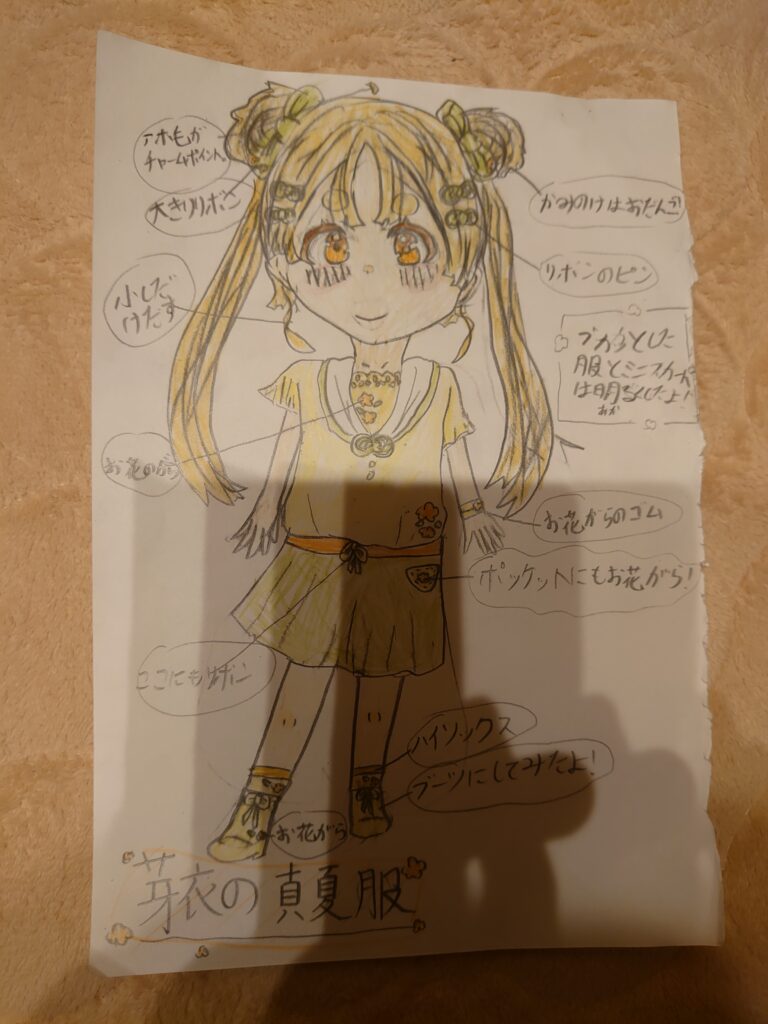 アホ毛が
チャームポイント。
大きいリボン
かみのけはおだんご!
小しだ
けだす
リボンのピン
ブカブカとした
服とミニスカート
は明るくしたよ!
あか
お花がらのゴム
ポッケットにもお花がら!
ここにもリボン
ハイソックス
ブーツにしてみたよ!
お花がら
芽衣の真夏服